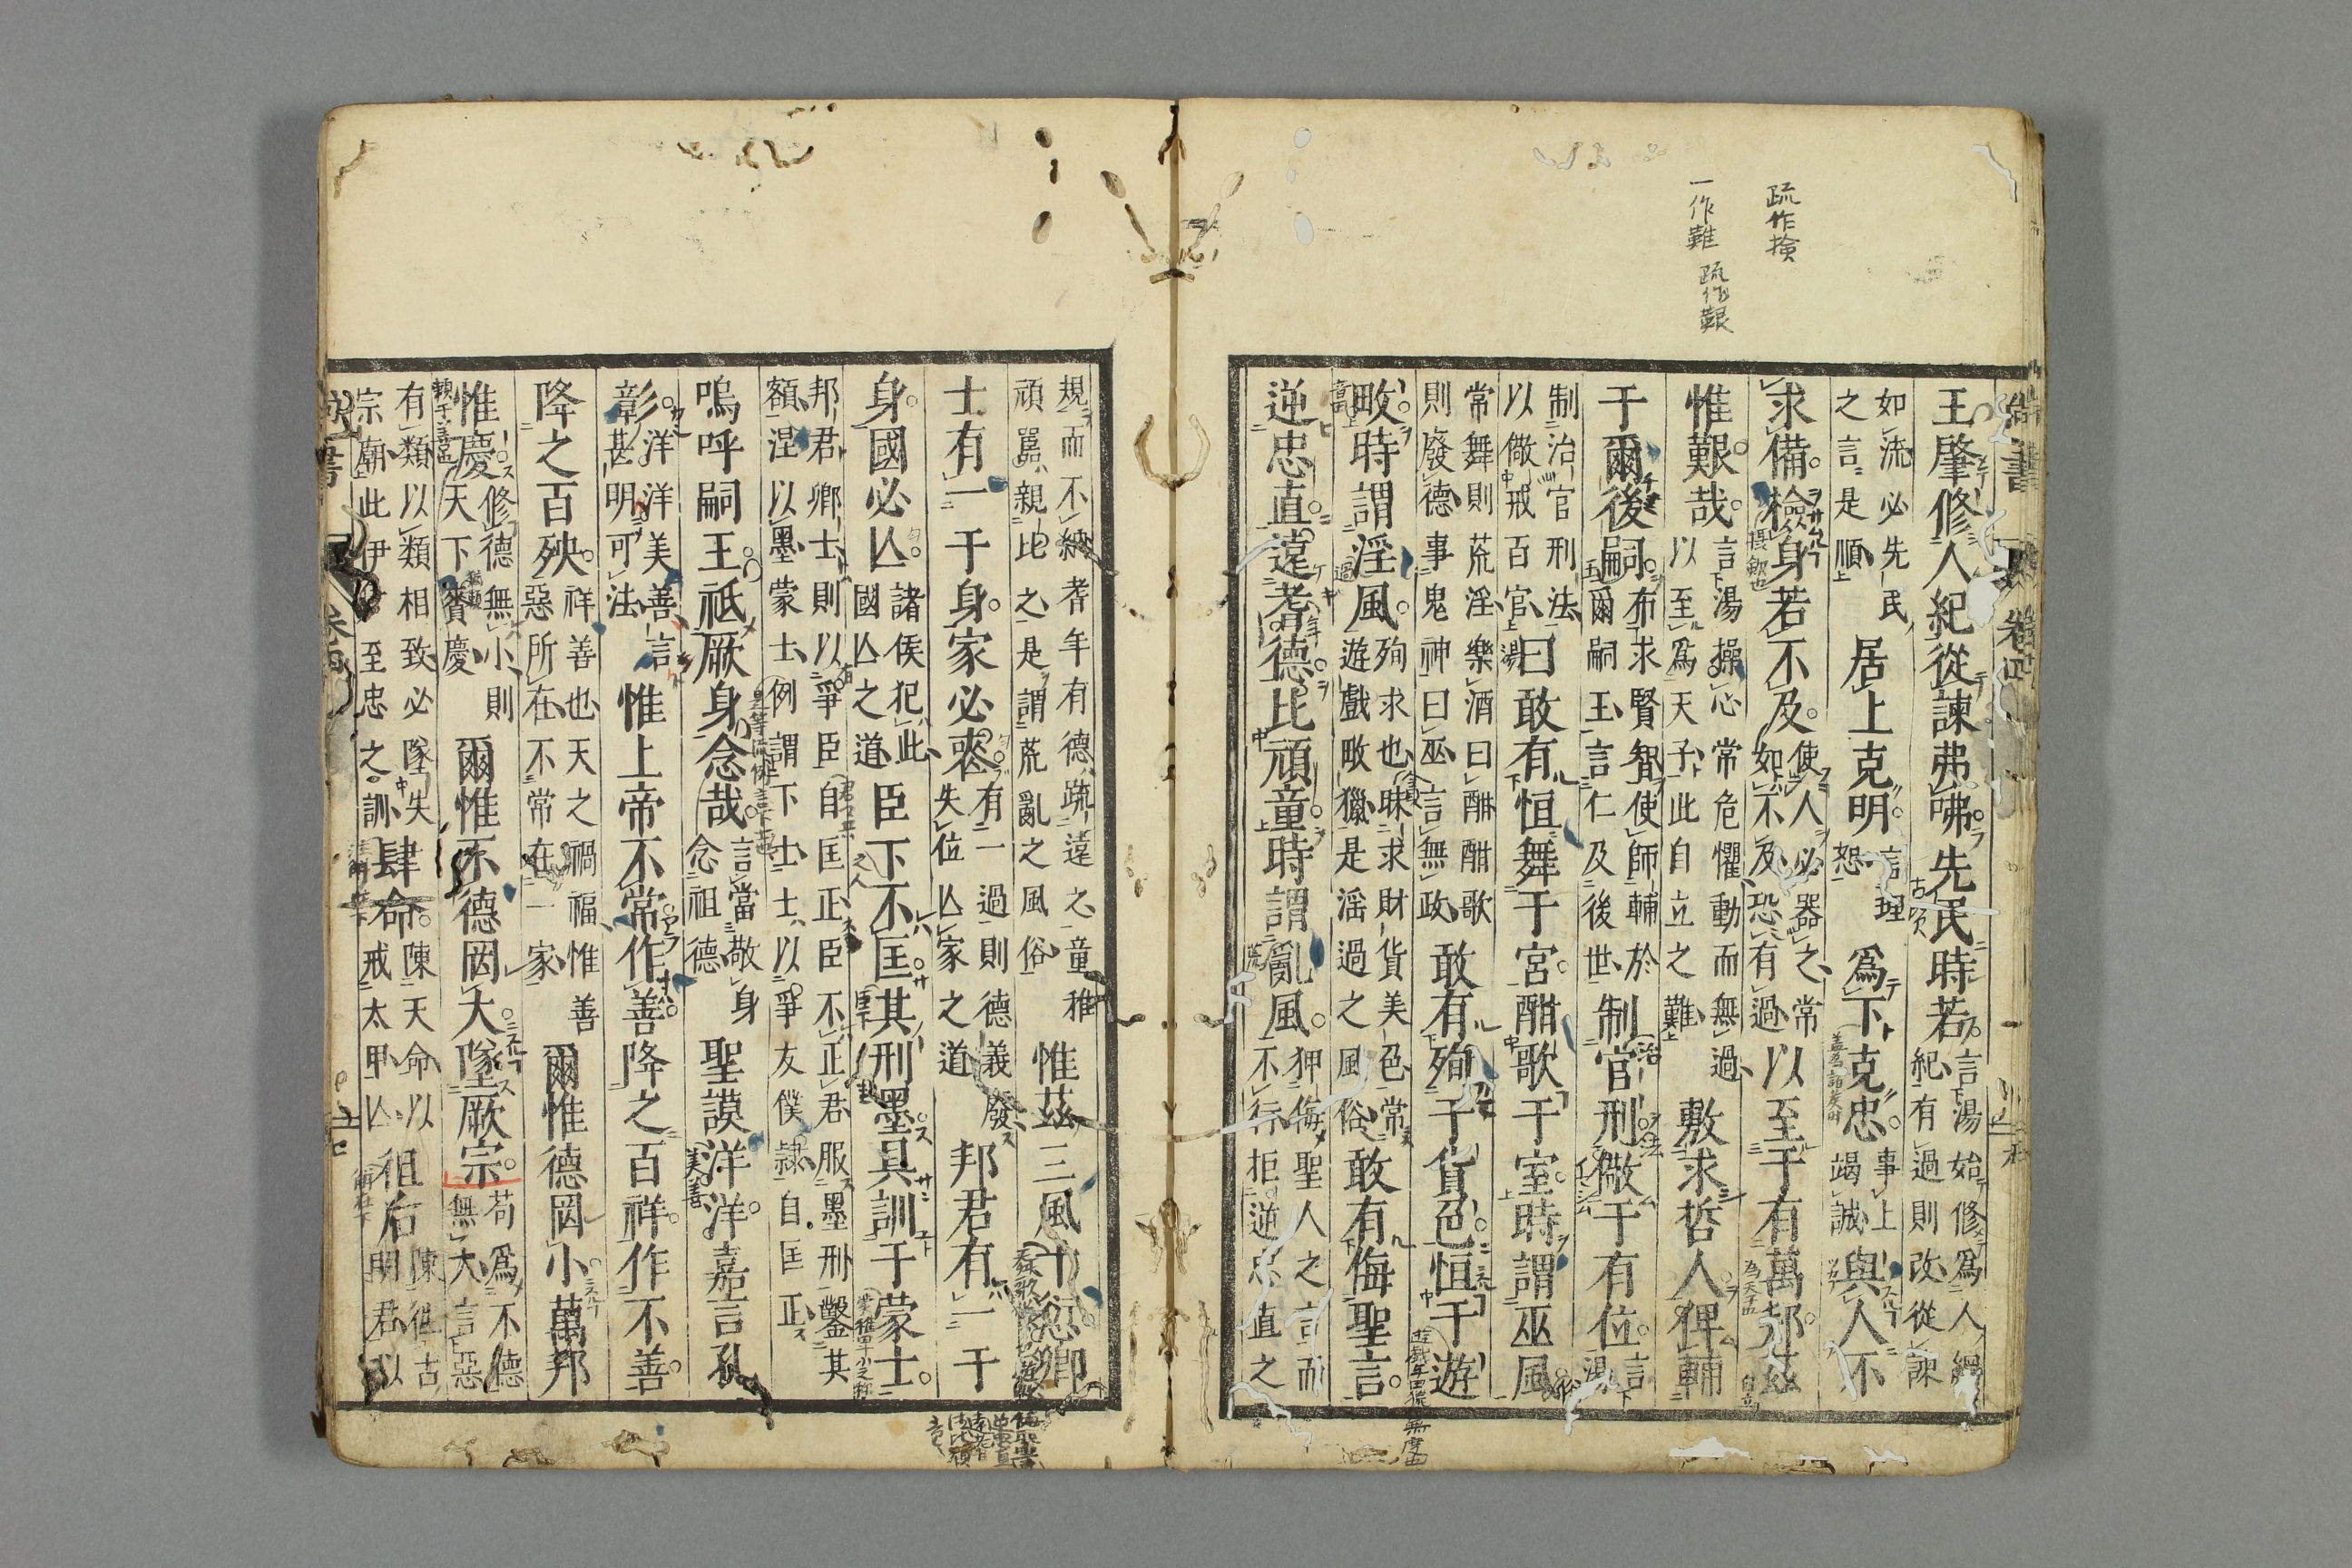 疏作撿
一作難 疏作艱
尚書 卷四
王肇修人紀從諫弗咈先民時若言湯始修爲人綱紀有過則改從諫
如流必先民之言是順居上克明言理恕爲下克忠事上竭誠與人不
求備檢身若不及使人必器之常如不及恐有過以至于有萬邦茲
惟艱哉言湯操心常危懼動而無過以至爲天子此自立之難敷求哲人俾輔
于爾後嗣布求賢智使師輔於爾嗣王言仁及後世制官刑儆于有位言湯
制治官刑法以儆戒百官曰敢有恒舞于宮酣歌于室時謂巫風
常舞則荒淫樂酒曰酣酣歌則廢德事鬼神曰巫言無政敢有殉于貨色恒于遊
畋時謂淫風殉求也昧求財貨美色常遊戲畋獵是淫過之風俗敢有侮聖言
逆忠直遠耆德比頑童時謂亂風狎侮聖人之言而不行拒逆忠直之
規而不納耆年有德疏遠之童稚頑嚚親比之是謂荒亂之風俗惟茲三風十愆卿
士有一于身家必喪有一過則德義廢失位亾家之道邦君有一于
身國必亾諸侯犯此國亾之道臣下不匡其刑墨具訓于蒙士
邦君卿士則以爭臣自匡正臣不正君服墨刑鑿其額涅以墨蒙士例謂下士士以爭友僕隷自匡正
嗚呼嗣王祗厥身念哉言當敬身念祖德聖謨洋洋嘉言孔
彰洋洋美善言甚明可法惟上帝不常作善降之百祥作不善
降之百殃祥善也天之禍福惟善惡所在不常在一家爾惟德罔小萬邦
惟慶修德無小則天下賚慶爾惟不德罔大墜厥宗苟爲不德無大言惡
有類以類相致必墜失宗廟此伊尹至忠之訓肆命陳天命以戒太甲亾徂后陳徂古明君以